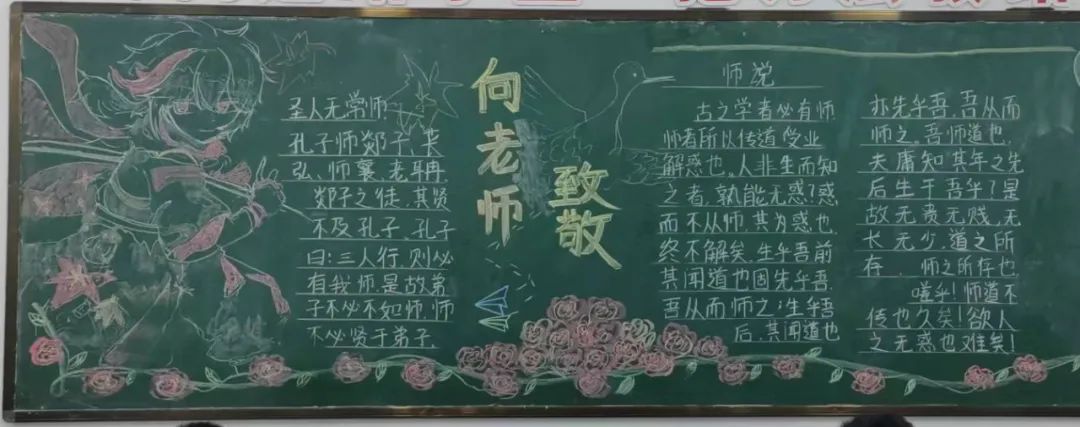 圣人无常师.
孔子师郯子、苌
弘、师襄、老聃.
郯子之徒,其贤
不及孔子.孔子
曰:三人行,则必
有我师.是故弟
子不必不如师,师
不必贤于弟子.
向老师
致敬
师说
古之学者必有师
师者所以传道受业
解惑也.人非生而知
之者,孰能无惑?惑
而不从师,其为惑也
终不解矣.生乎吾前
其闻道也固先乎吾.
吾从而师之;生乎吾
后,其闻道也
亦先乎吾,吾从而
师之.吾师道也.
夫庸知其年之先
后生于吾乎?是
故无贵无贱,无
长无少,道之所
存 师之所存也.
嗟乎!师道不
传也久矣!欲人
之无惑也难矣!